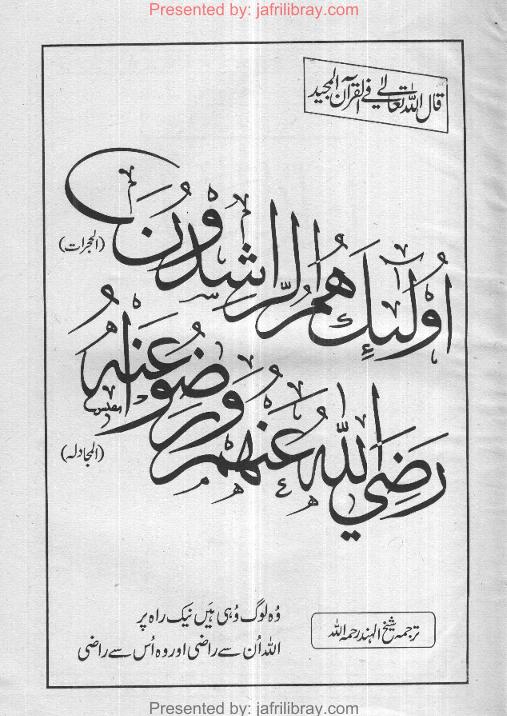 Presented by: jafrilibray.com
قال اللہ تعالیٰ فی القرآن المجید
اُولٰٓئِكَ هُمُ الرّٰشِدُوْنَ
(الحجرات)
رَضِیَ اللّٰهُ عَنْهُمْ وَرَضُوْا عَنْهُ
(المجادلہ)
ترجمہ شیخ الہند رحمہ اللہ
وُہ لوگ وُہی ہَیں نیک راہ پر
اللہ اُن سے راضی اور وہ اُس سے راضی
Presented by: jafrilibray.com